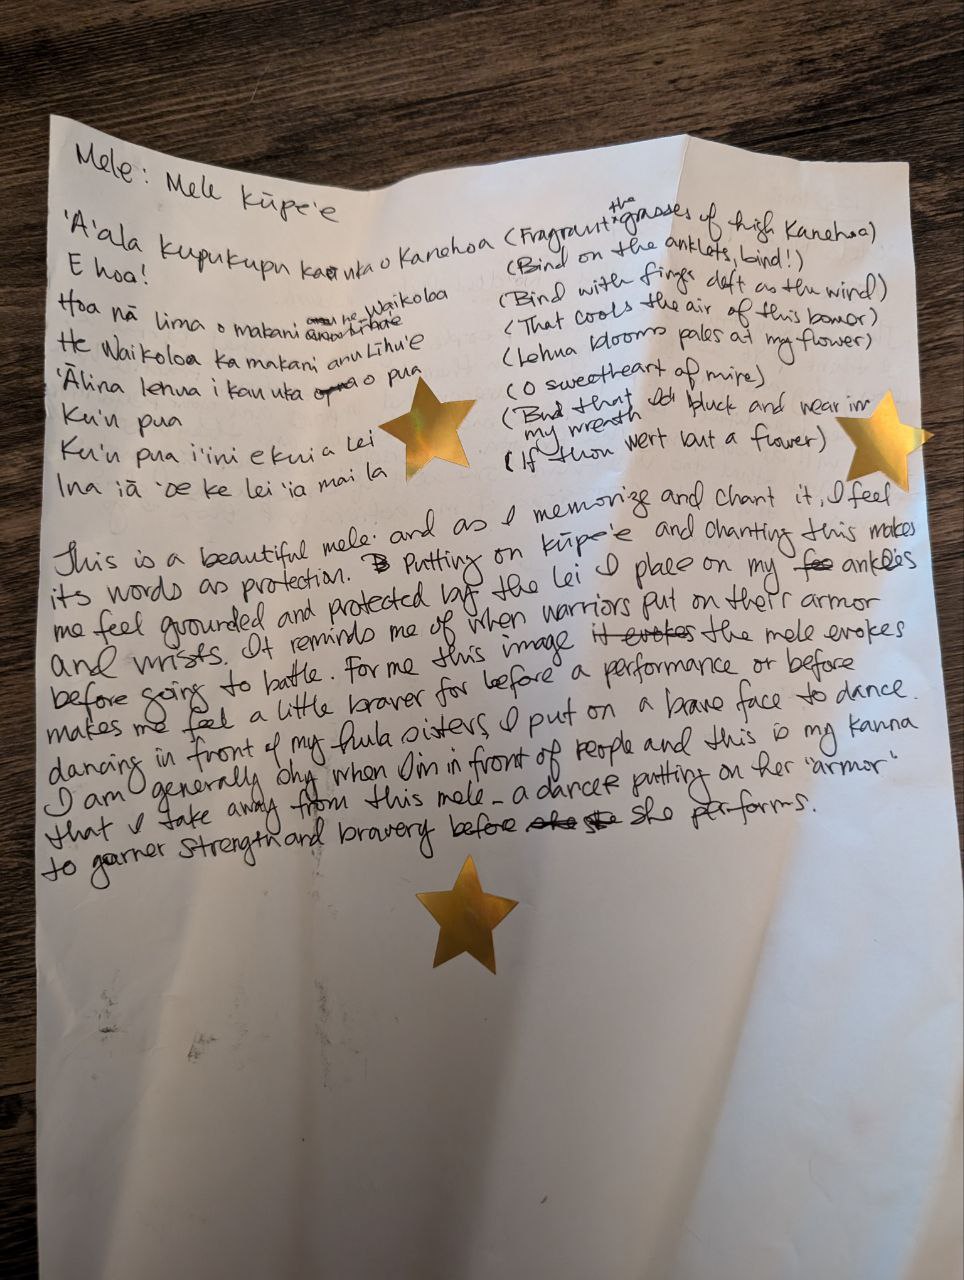 Mele: Mele Kūpe'e
'A'ala kupukupu ka uka o Kanehoa (Fragrant the grasses of high Kanehoa)
E hoa! (Bind on the anklets, bind!)
Hoa nā lima o makani he Waikoloa (Bind with fings deft as the wind)
He Waikoloa ka makani anu Līhu'e (That cools the air of this bower)
'Ālina lehua i kau uka o pua (Lehua blooms pales at my flower)
Ku'u pua (O sweetheart of mine)
Ku'u pua i'ini e kui a lei (Bud that I'd pluck and wear in my wreath
Ina iā 'oe ke lei 'ia mai la (If thou wert but a flower)
This is a beautiful mele and as I memorize and chant it, I feel
its words as protection. Putting on kūpe'e and chanting this makes
me feel grounded and protected by the lei I place on my ankles
and wrists. It reminds me of when warriors put on their armor
before going to battle. For me this image the mele evokes
makes me feel a little braver for before a performance or before
dancing in front of my hula sisters, I put on a brave face to dance.
I am generally shy when I'm in front of people and this is my kanna
that I take away from this mele - a dancer putting on her "armor"
to garner strength and bravery before she performs.